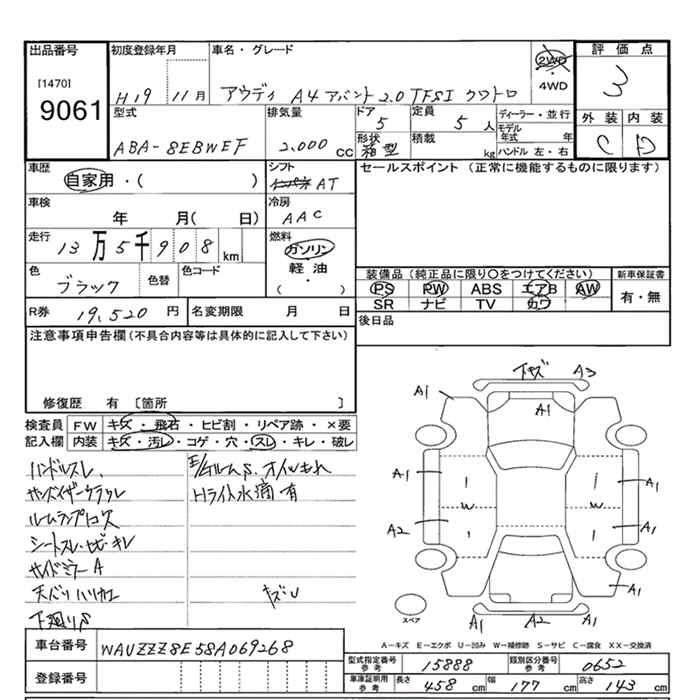 出品番号
[1470]
9061
初度登録年月
H19 11月
車名・グレード
アウディ A4 アバント 2.0 TFSI クワトロ
2WD
・
4WD
評価点
3
外装 内装
C D
型式
ABA-8EBWEF
排気量
2,000 CC
ドア
5
定員
5 人
形状
箱型
積載
kg
ディーラー・並行
モデル年式 年
ハンドル 左・右
車歴
自家用・( )
シフト
AT
車検
年 月( 日)
冷房
AAC
走行
13万5千908km
燃料
ガソリン
軽油
・
( )
色
ブラック
色替
色コード
R券 19,520 円
名変期限 月 日
セールスポイント (正常に機能するものに限ります)
装備品(純正品に限り〇をつけてください)
PS PW ABS エアB AW
SR ナビ TV カワ
新車保証書
有・無
後日品
注意事項申告欄(不具合内容等は具体的に記入して下さい)
修復歴 有 〔箇所 〕
検査員記入欄
FW キズ・飛石・ヒビ割・リペア跡・×要
内装 キズ・汚レ・コゲ・穴・スレ・キレ・破レ
ハンドルスレ
サンバイザーウラワレ
ルームランプコワ
シートスレ・ヒビ・キレ
サイドミラーA
下廻りS
E/gルームS、オイルもれ
Hライト水滴有
下キズ A3
A1
A1
A1
A1
A1
A2
A1
W
W
A1
A1
A2
A1
スペア
A-キズ E-エクボ U-凹み W-補修跡 S-サビ C-腐食 XX-交換済
車台番号
WAUZZZ8E58A069268
登録番号
型式指定番号 参考 15888
類別区分番号 参考 0652
車庫証明用 参考 長さ 458 cm 幅 177 cm 高さ 143 cm